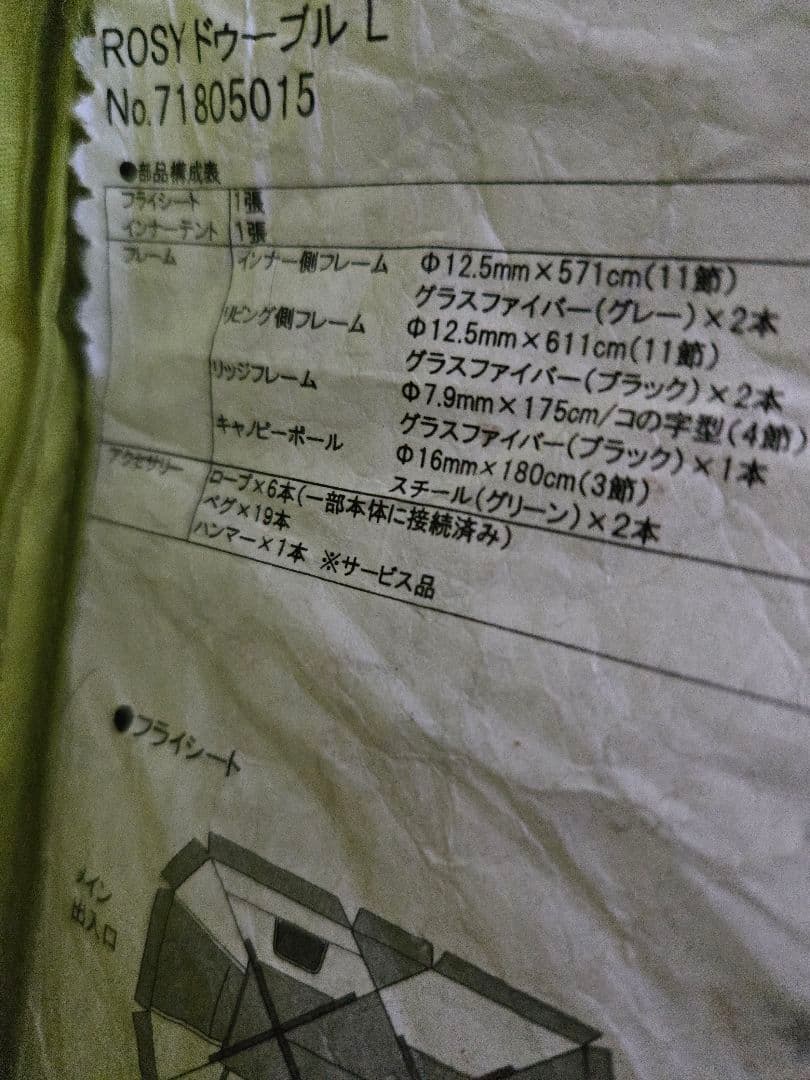 ROSYドゥーブル L
No.71805015
●部品構成表
フライシート 1張
インナーテント 1張
フレーム インナー側フレーム Φ12.5mm×571cm(11節)
グラスファイバー(グレー)×2本
リビング側フレーム Φ12.5mm×611cm(11節)
グラスファイバー(ブラック)×2本
リッジフレーム Φ7.9mm×175cm/コの字型(4節)
グラスファイバー(ブラック)×1本
キャノピーポール Φ16mm×180cm(3節)
スチール(グリーン)×2本
アクセサリー ロープ×6本(一部本体に接続済み)
ペグ×19本
ハンマー×1本 ※サービス品
●フライシート
メイン
出入口